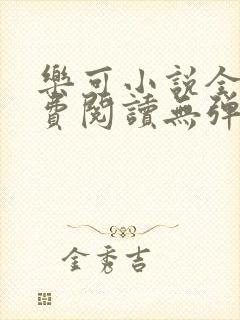 樂可小說全
費閱讀無彈
金秀吉